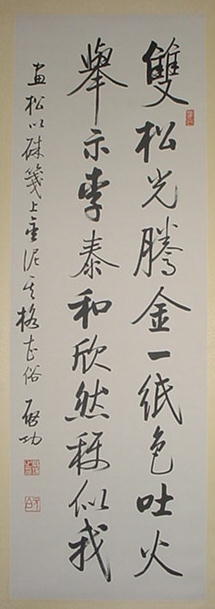 雙松光騰金一紙色吐火
舉示李泰和欣然稱似我
畫松以硃箋上重泥其格老俗 啟功